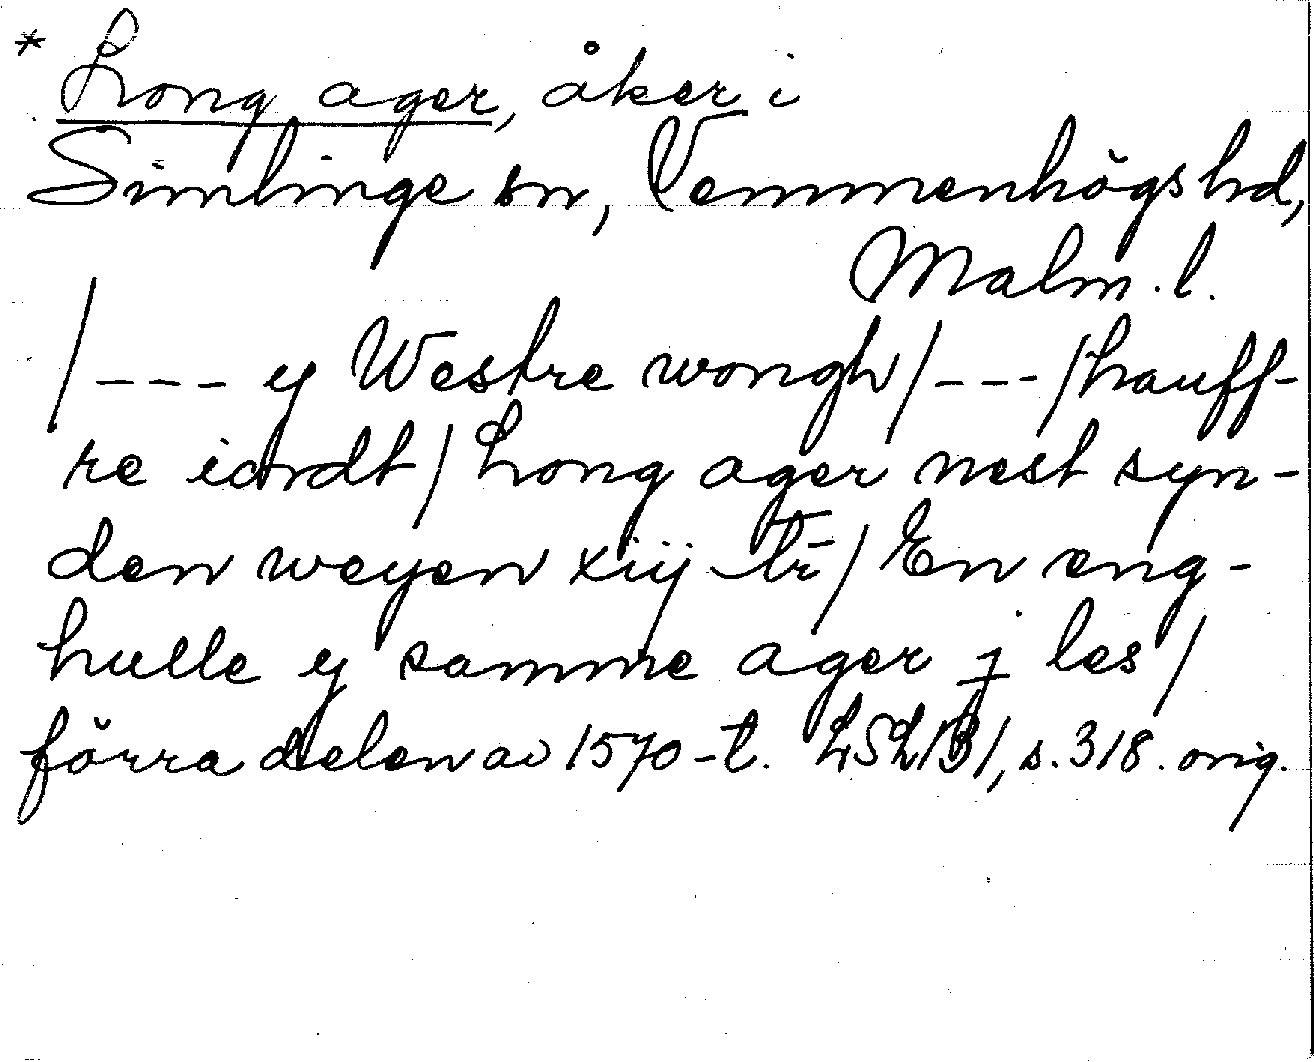 * Long ager, åker i
Simlinge sn, Vemmenhögs hd,
Malm. l.
/--- y Westre wongh/---/hauff-
re iordt/Long ager nest syn-
den weyen xiij ltr/ En eng-
hulle y samme ager j les/
förra delen av 1570-t. LSL/B/, s. 318. orig.